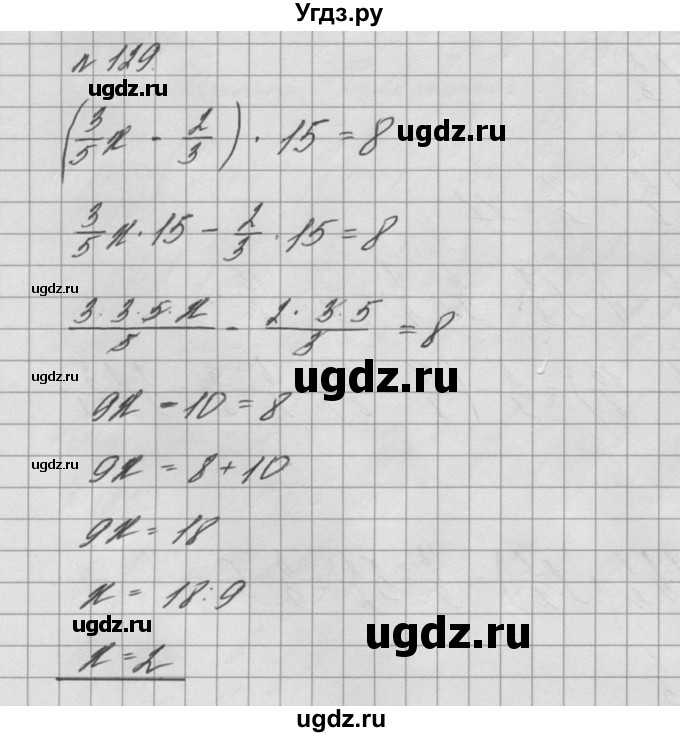 Угдз.ру
№ 129.
ugdz.ru
(3/5 x - 2/3) · 15 = 8
ugdz.ru
3/5 x · 15 - 2/3 · 15 = 8
ugdz.ru
3·3·5·x/5 - 2·3·5/3 = 8
ugdz.ru
ugdz.ru
9x - 10 = 8
ugdz.ru
9x = 8 + 10
9x = 18
x = 18:9
ugdz.ru
ugdz.ru
x = 2
ugdz.ru